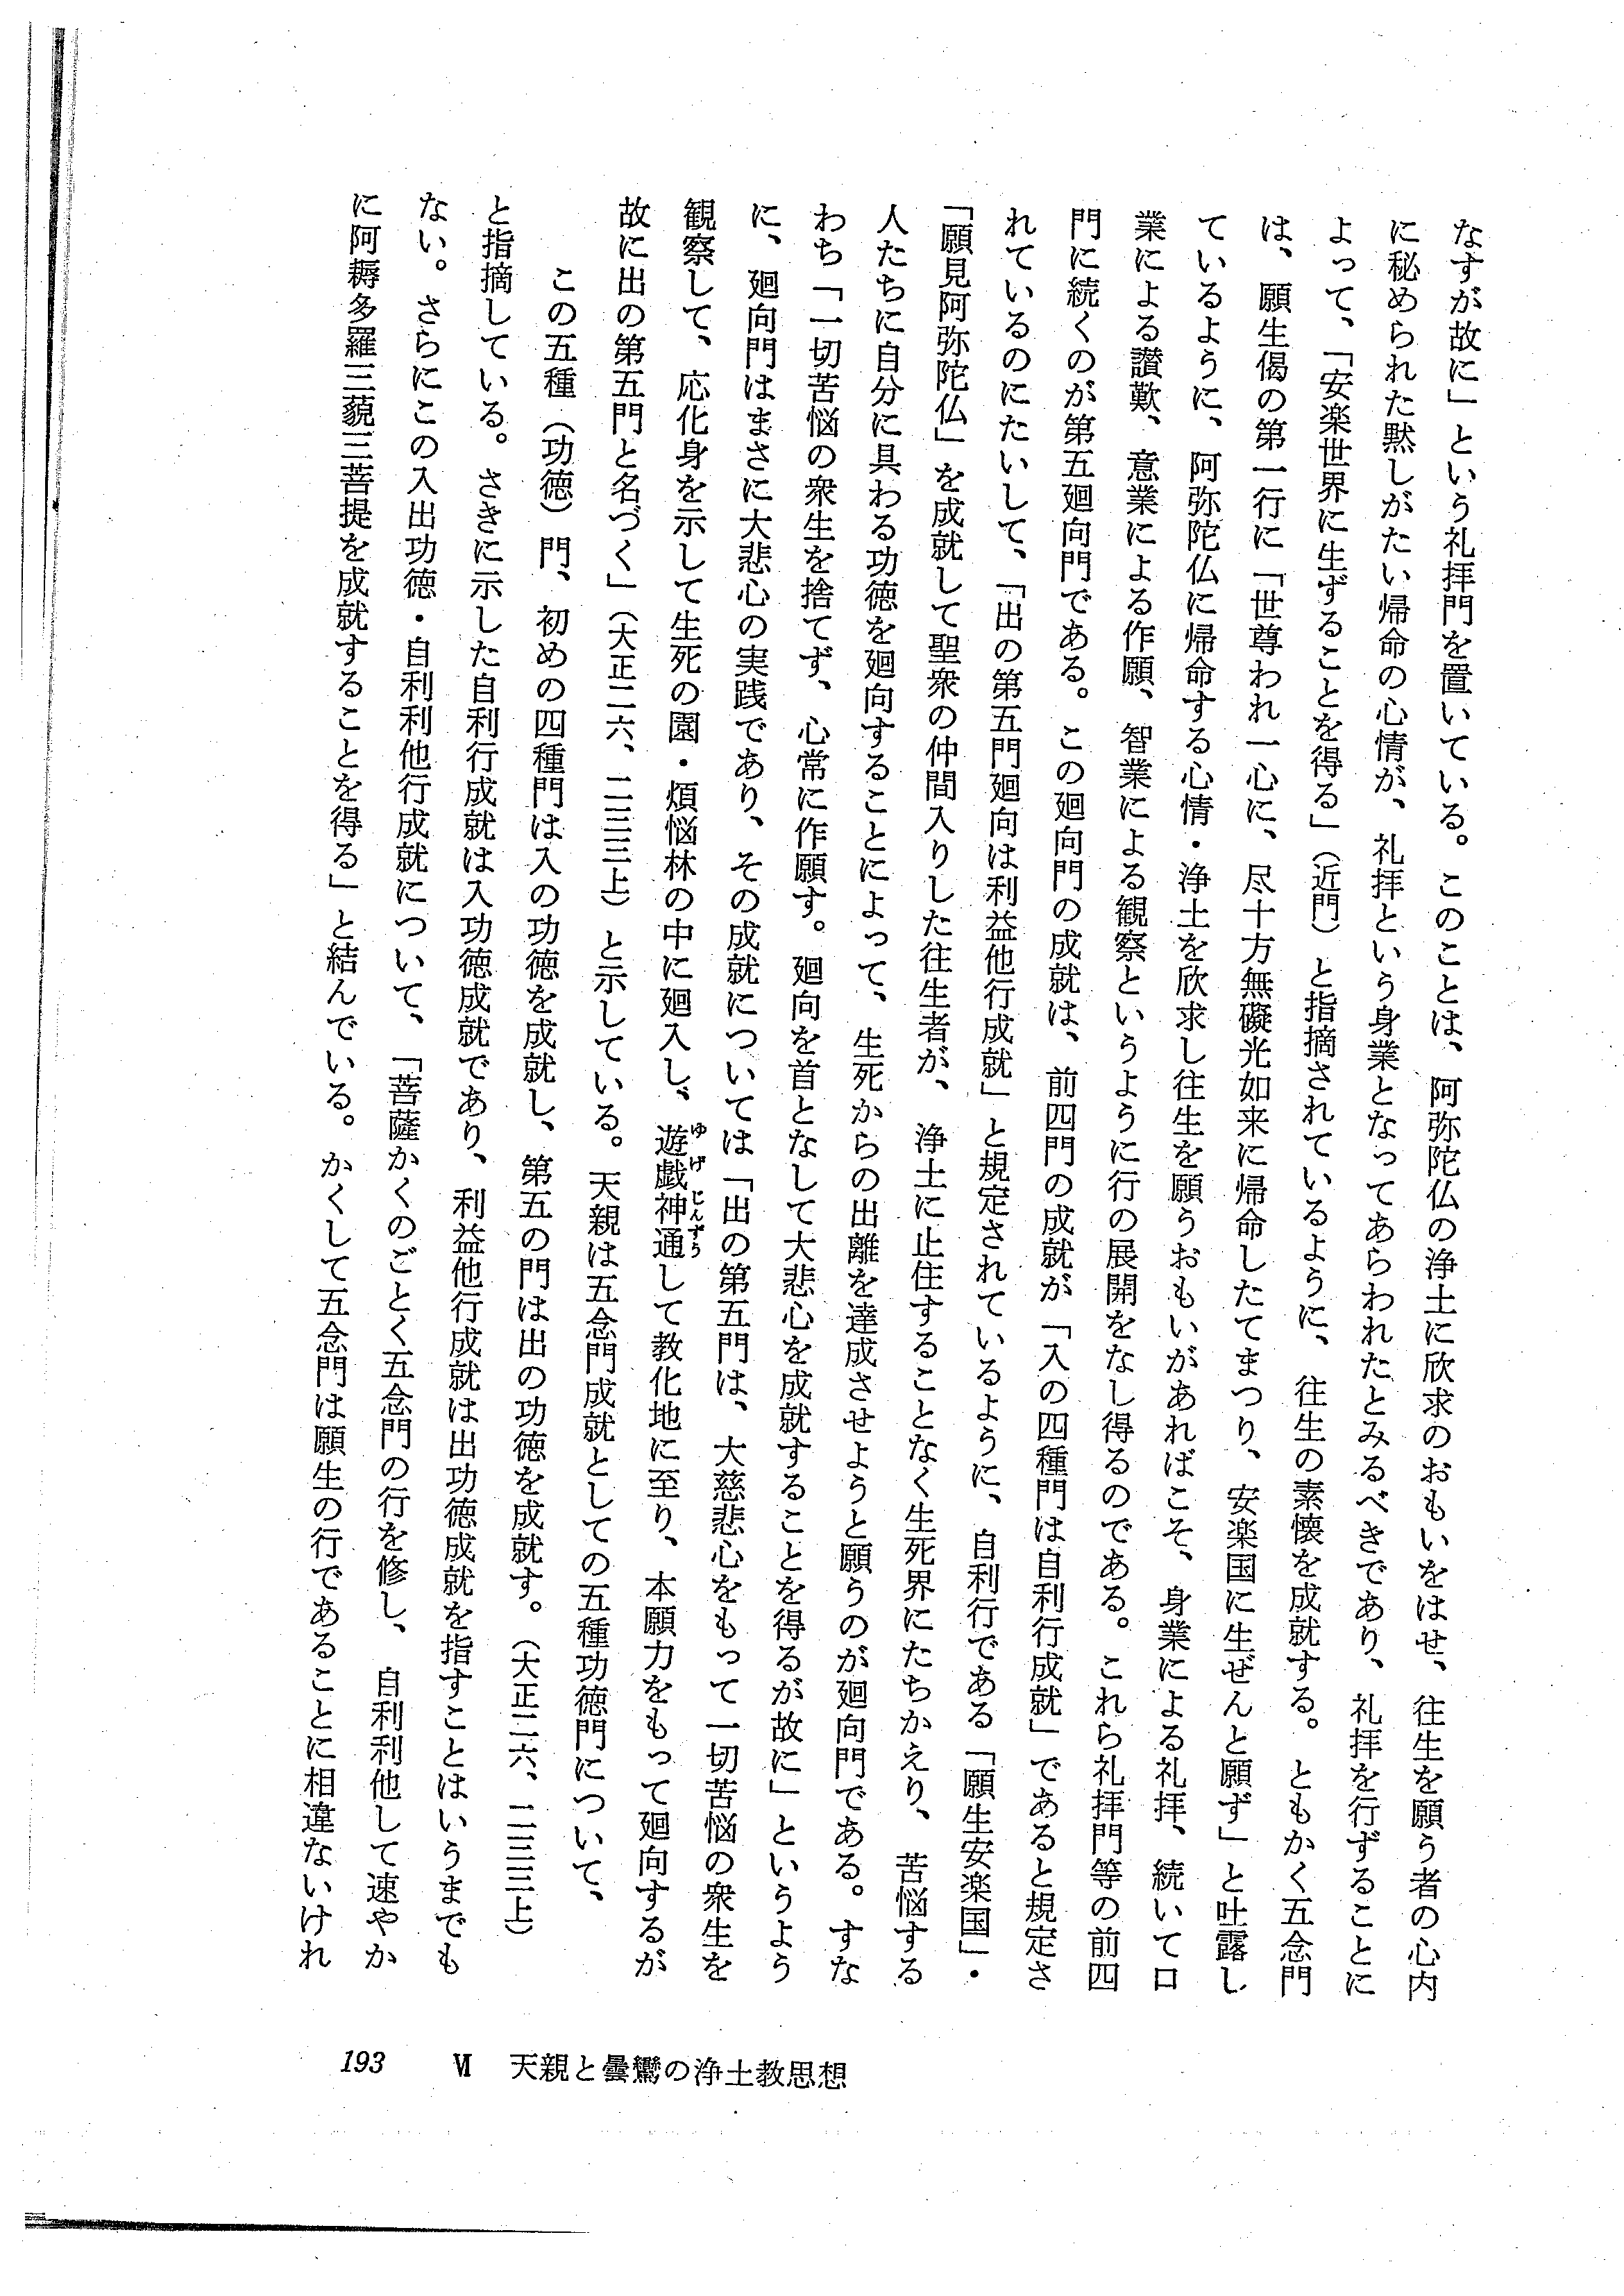 なすが故に」という礼拝門を置いている。このことは、阿弥陀仏の浄土に欣求のおもいをはせ、往生を願う者の心内
に秘められた黙しがたい帰命の心情が、礼拝という身業となってあらわれたとみるべきであり、礼拝を行ずることに
よって、「安楽世界に生ずることを得る」（近門）と指摘されているように、往生の素懐を成就する。ともかく五念門
は、願生偈の第一行に「世尊われ一心に、尽十方無礙光如来に帰命したてまつり、安楽国に生ぜんと願ず」と吐露し
ているように、阿弥陀仏に帰命する心情・浄土を欣求し往生を願うおもいがあればこそ、身業による礼拝、続いて口
業による讃歎、意業による作願、智業による観察というように行の展開をなし得るのである。これら礼拝門等の前四
門に続くのが第五廻向門である。この廻向門の成就は、前四門の成就が「入の四種門は自利行成就」であると規定さ
れているのにたいして、「出の第五門廻向は利益他行成就」と規定されているように、自利行である「願生安楽国」・
「願見阿弥陀仏」を成就して聖衆の仲間入りした往生者が、浄土に止住することなく生死界にたちかえり、苦悩する
人たちに自分に具わる功徳を廻向することによって、生死からの出離を達成させようと願うのが廻向門である。すな
わち「一切苦悩の衆生を捨てず、心常に作願す。廻向を首となして大悲心を成就することを得るが故に」というよう
に、廻向門はまさに大悲心の実践であり、その成就については「出の第五門は、大慈悲心をもって一切苦悩の衆生を
観察して、応化身を示して生死の園・煩悩林の中に廻入し、遊戯神通して教化地に至り、本願力をもって廻向するが
ゆげじんずう
故に出の第五門と名づく」（大正二六、二三三上）と示している。天親は五念門成就としての五種功徳門について、
この五種（功徳）門、初めの四種門は入の功徳を成就し、第五の門は出の功徳を成就す。（大正二六、二三三上）
と指摘している。さきに示した自利行成就は入功徳成就であり、利益他行成就は出功徳成就を指すことはいうまでも
ない。さらにこの入出功徳・自利利他行成就について、「菩薩かくのごとく五念門の行を修し、自利利他して速やか
に阿耨多羅三藐三菩提を成就することを得る」と結んでいる。かくして五念門は願生の行であることに相違ないけれ
193 Ⅵ 天親と曇鸞の浄土教思想